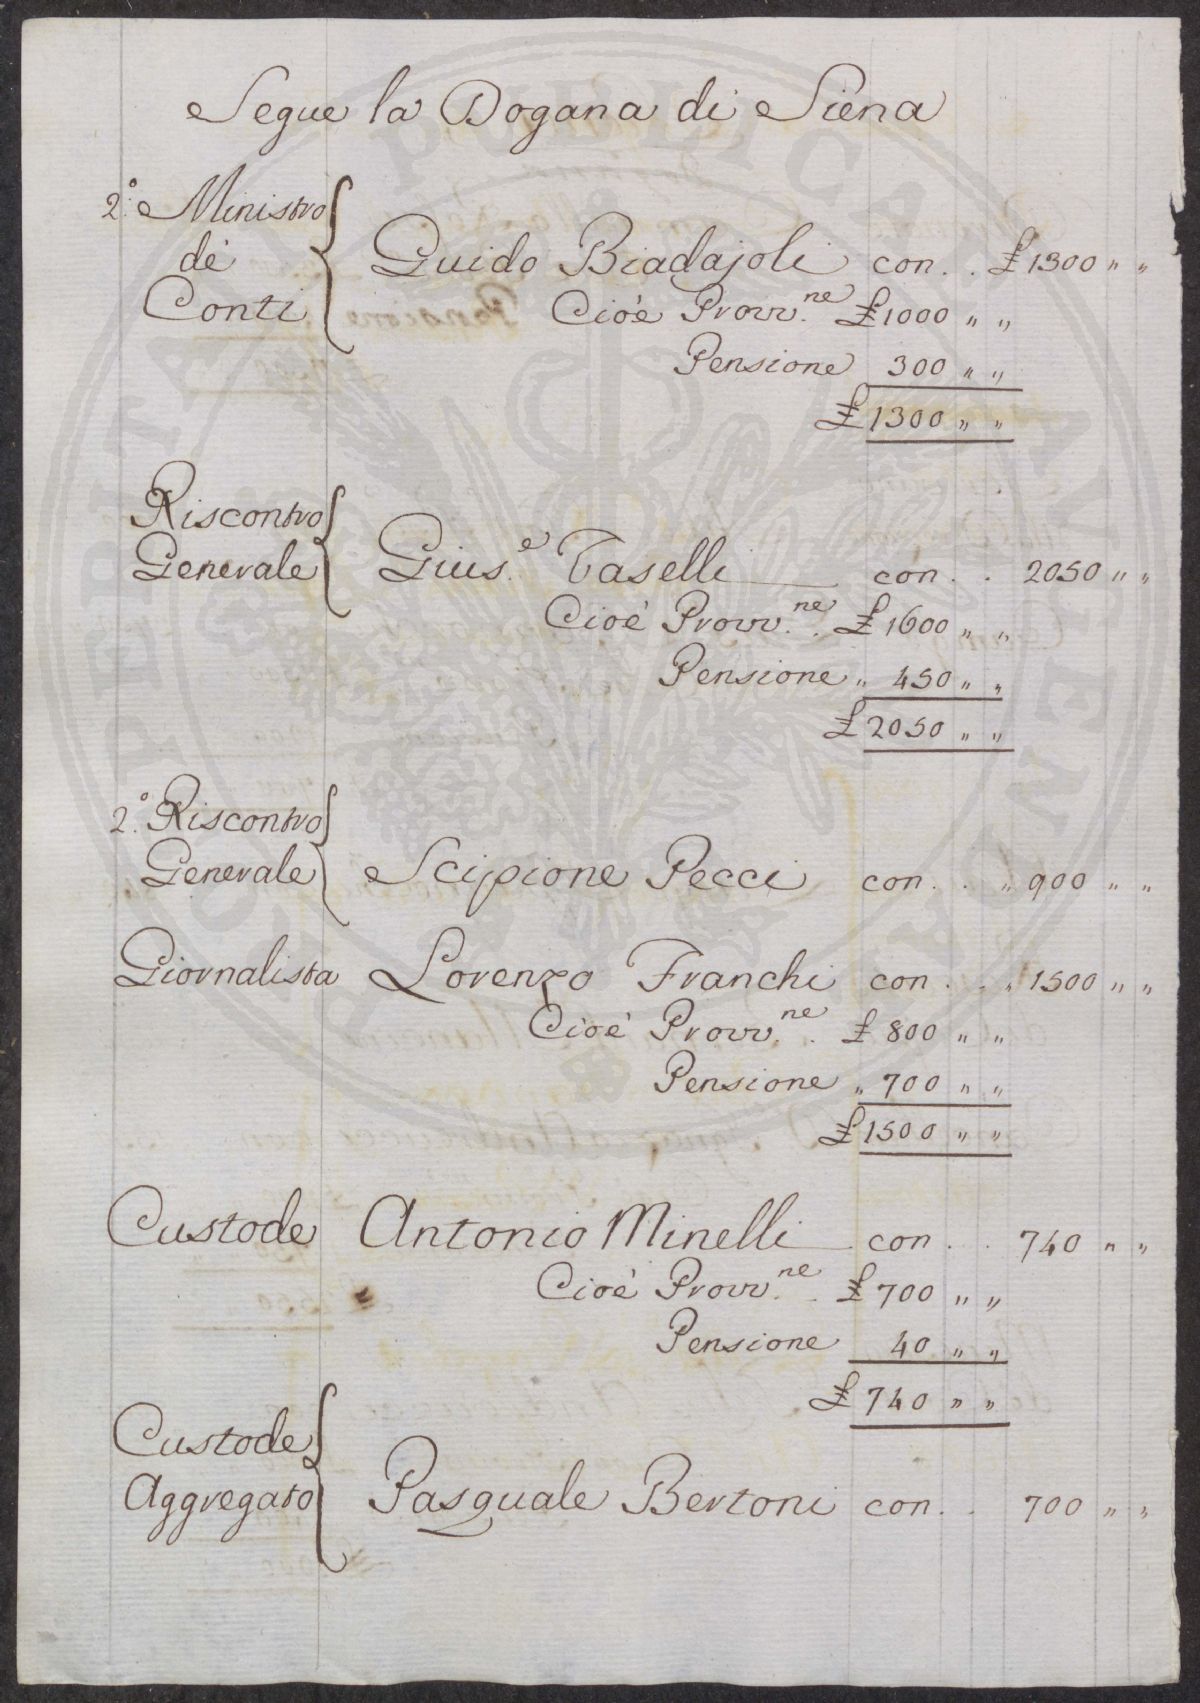 Segue la Dogana di Siena
2.° Ministro
de' Conti
Guido Biadajoli con . . £ 1300 " "
Cioè Provv.ne £ 1000 " "
Pensione 300 " "
£ 1300 " "
Riscontro
Generale
Gius.e Taselli con . . 2050 " "
Cioè Provv.ne . £ 1600 " "
Pensione " 450 " "
£ 2050 " "
2.° Riscontro
Generale
Scipione Pecci con . . " 900 " "
Giornalista Lorenzo Franchi con . . " 1500 " "
Cioè Provv.ne . £ 800 " "
Pensione " 700 " "
£ 1500 " "
Custode Antonio Minelli con . . 740 " "
Cioè Provv.ne . £ 700 " "
Pensione 40 " "
£ 740 " "
Custode
Aggregato
Pasquale Bertoni con . . 700 " "